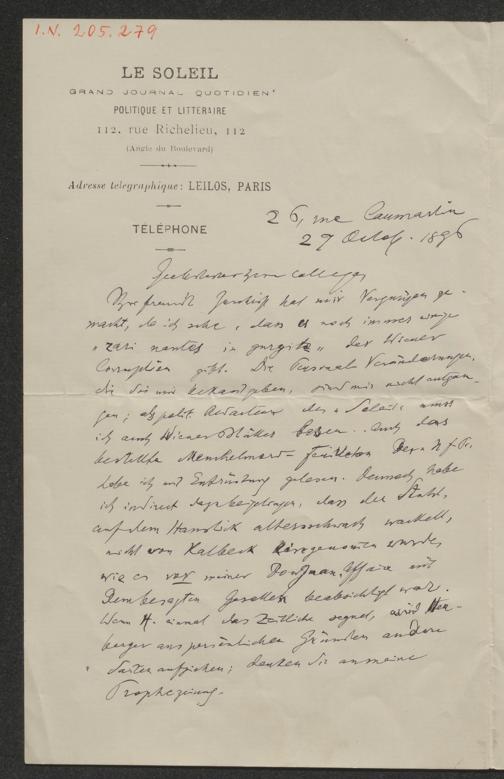 I.N. 205.279
LE SOLEIL
GRAND JOURNAL QUOTIDIEN
POLITIQUE ET LITTÉRAIRE
112, rue Richelieu, 112
(Angle du Boulevard)
Adresse télégraphique: LEILOS, PARIS
TÉLÉPHONE
26, rue Caumartin
27 Octob. 1896
Ihr freundl. hat mir Vergnügen ge-
macht, da ich sehe, dass es noch immer wenige
"rari nantes in gurgite" der Wiener
Corruption gibt. Die Personal-Veränderungen,
die Sie mir bekanntgeben, sind mir nicht entgan-
gen; als polit. Redacteur des "Soleil" muss
ich auch Wiener Blätter lesen. Auch das
bestellte Feuilleton der N. f. Pr.
habe ich mit Entrüstung gelesen. Dennoch habe
ich indirect dazu beigetragen, dass der Stuhl,
auf dem Hanslick altersschwach wackelt,
nicht von Kalbeck eingenommen wurde,
wie es vor meiner Affaire mit
dem besagten Gesellen beabsichtigt war.
Wenn H. einmal das Zeitliche segnet, wird Heu-
berger aus persönlichen Gründen andere
Saiten aufziehen; denken Sie an meine
Prophezeiung.